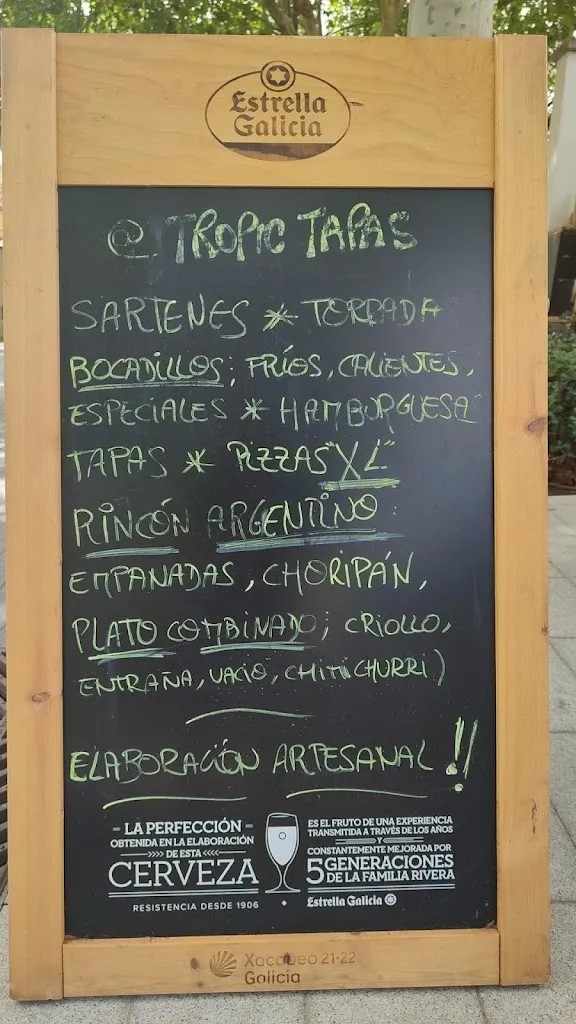 Estrella
Galicia
@ TROPIC TAPAS
SARTENES * TORRADA
BOCADILLOS; FRÍOS, CALIENTES,
ESPECIALES * HAMBURGUESA
TAPAS * PIZZAS "XL"
RINCÓN ARGENTINO:
EMPANADAS, CHORIPÁN,
PLATO COMBINADO; CRIOLLO,
ENTRAÑA, VACIO, CHIMICHURRI)
ELABORACIÓN ARTESANAL !!
- LA PERFECCIÓN -
OBTENIDA EN LA ELABORACIÓN
>>>> DE ESTA <<<<
CERVEZA
RESISTENCIA DESDE 1906
ES EL FRUTO DE UNA EXPERIENCIA
TRANSMITIDA A TRAVÉS DE LOS AÑOS
Y
CONSTANTEMENTE MEJORADA POR
5 GENERACIONES
DE LA FAMILIA RIVERA
Estrella Galicia
Xacobeo 21·22
Galicia